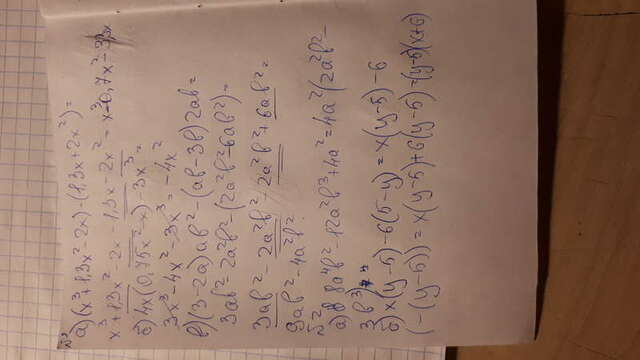 №1
а)(x³+1,3x²-2x)-(1,3x+2x²)=
x³+1,3x²-2x-1,3x-2x²=x³-0,7x²-3,3x
б)4x(0,75x²-x)-3x³=
3x³-4x²-3x³=-4x²
в)(3-2a)ab²-(ab-3b)2ab=
3ab²-2a²b²-(2a²b²-6ab²)=
3ab²-2a²b²-2a²b²+6ab²=
9ab²-4a²b²
№2
а) 8a⁴b²-12a²b³+4a²=4a²(2a²b²-
3b³)
б) x(y-5)-6(5-y)=x(y-5)-6
(-(y-5))=x(y-5)+6(y-5)=(y-5)(x+6)